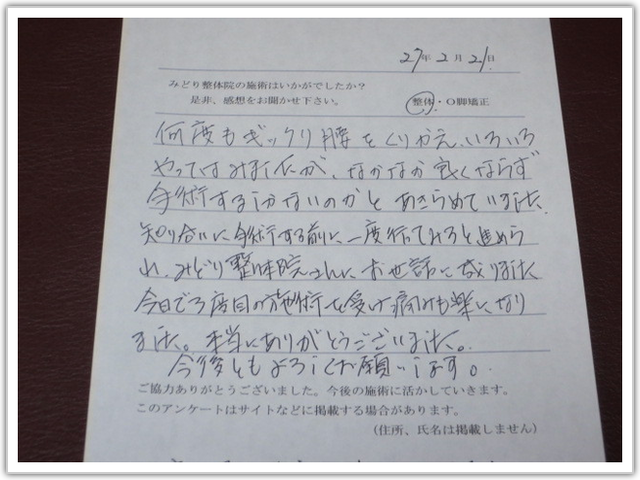 27年2月21日
みどり整体院の施術はいかがでしたか？
是非、感想をお聞かせ下さい。
整体・O脚矯正
何度もギックリ腰をくりかえ、いろいろ
やってはみましたが、なかなか良くならず
手術するしかないのかとあきらめていました。
知り合いに手術する前に一度行てみろと進めら
れ、みどり整体院さんにお世話に成りました
今日で3度目の施術を受け痛みも楽になり
ました。本当にありがとうございました。
今後ともよろしくお願いします。
ご協力ありがとうございました。今後の施術に活かしていきます。
このアンケートはサイトなどに掲載する場合があります。
（住所、氏名は掲載しません）